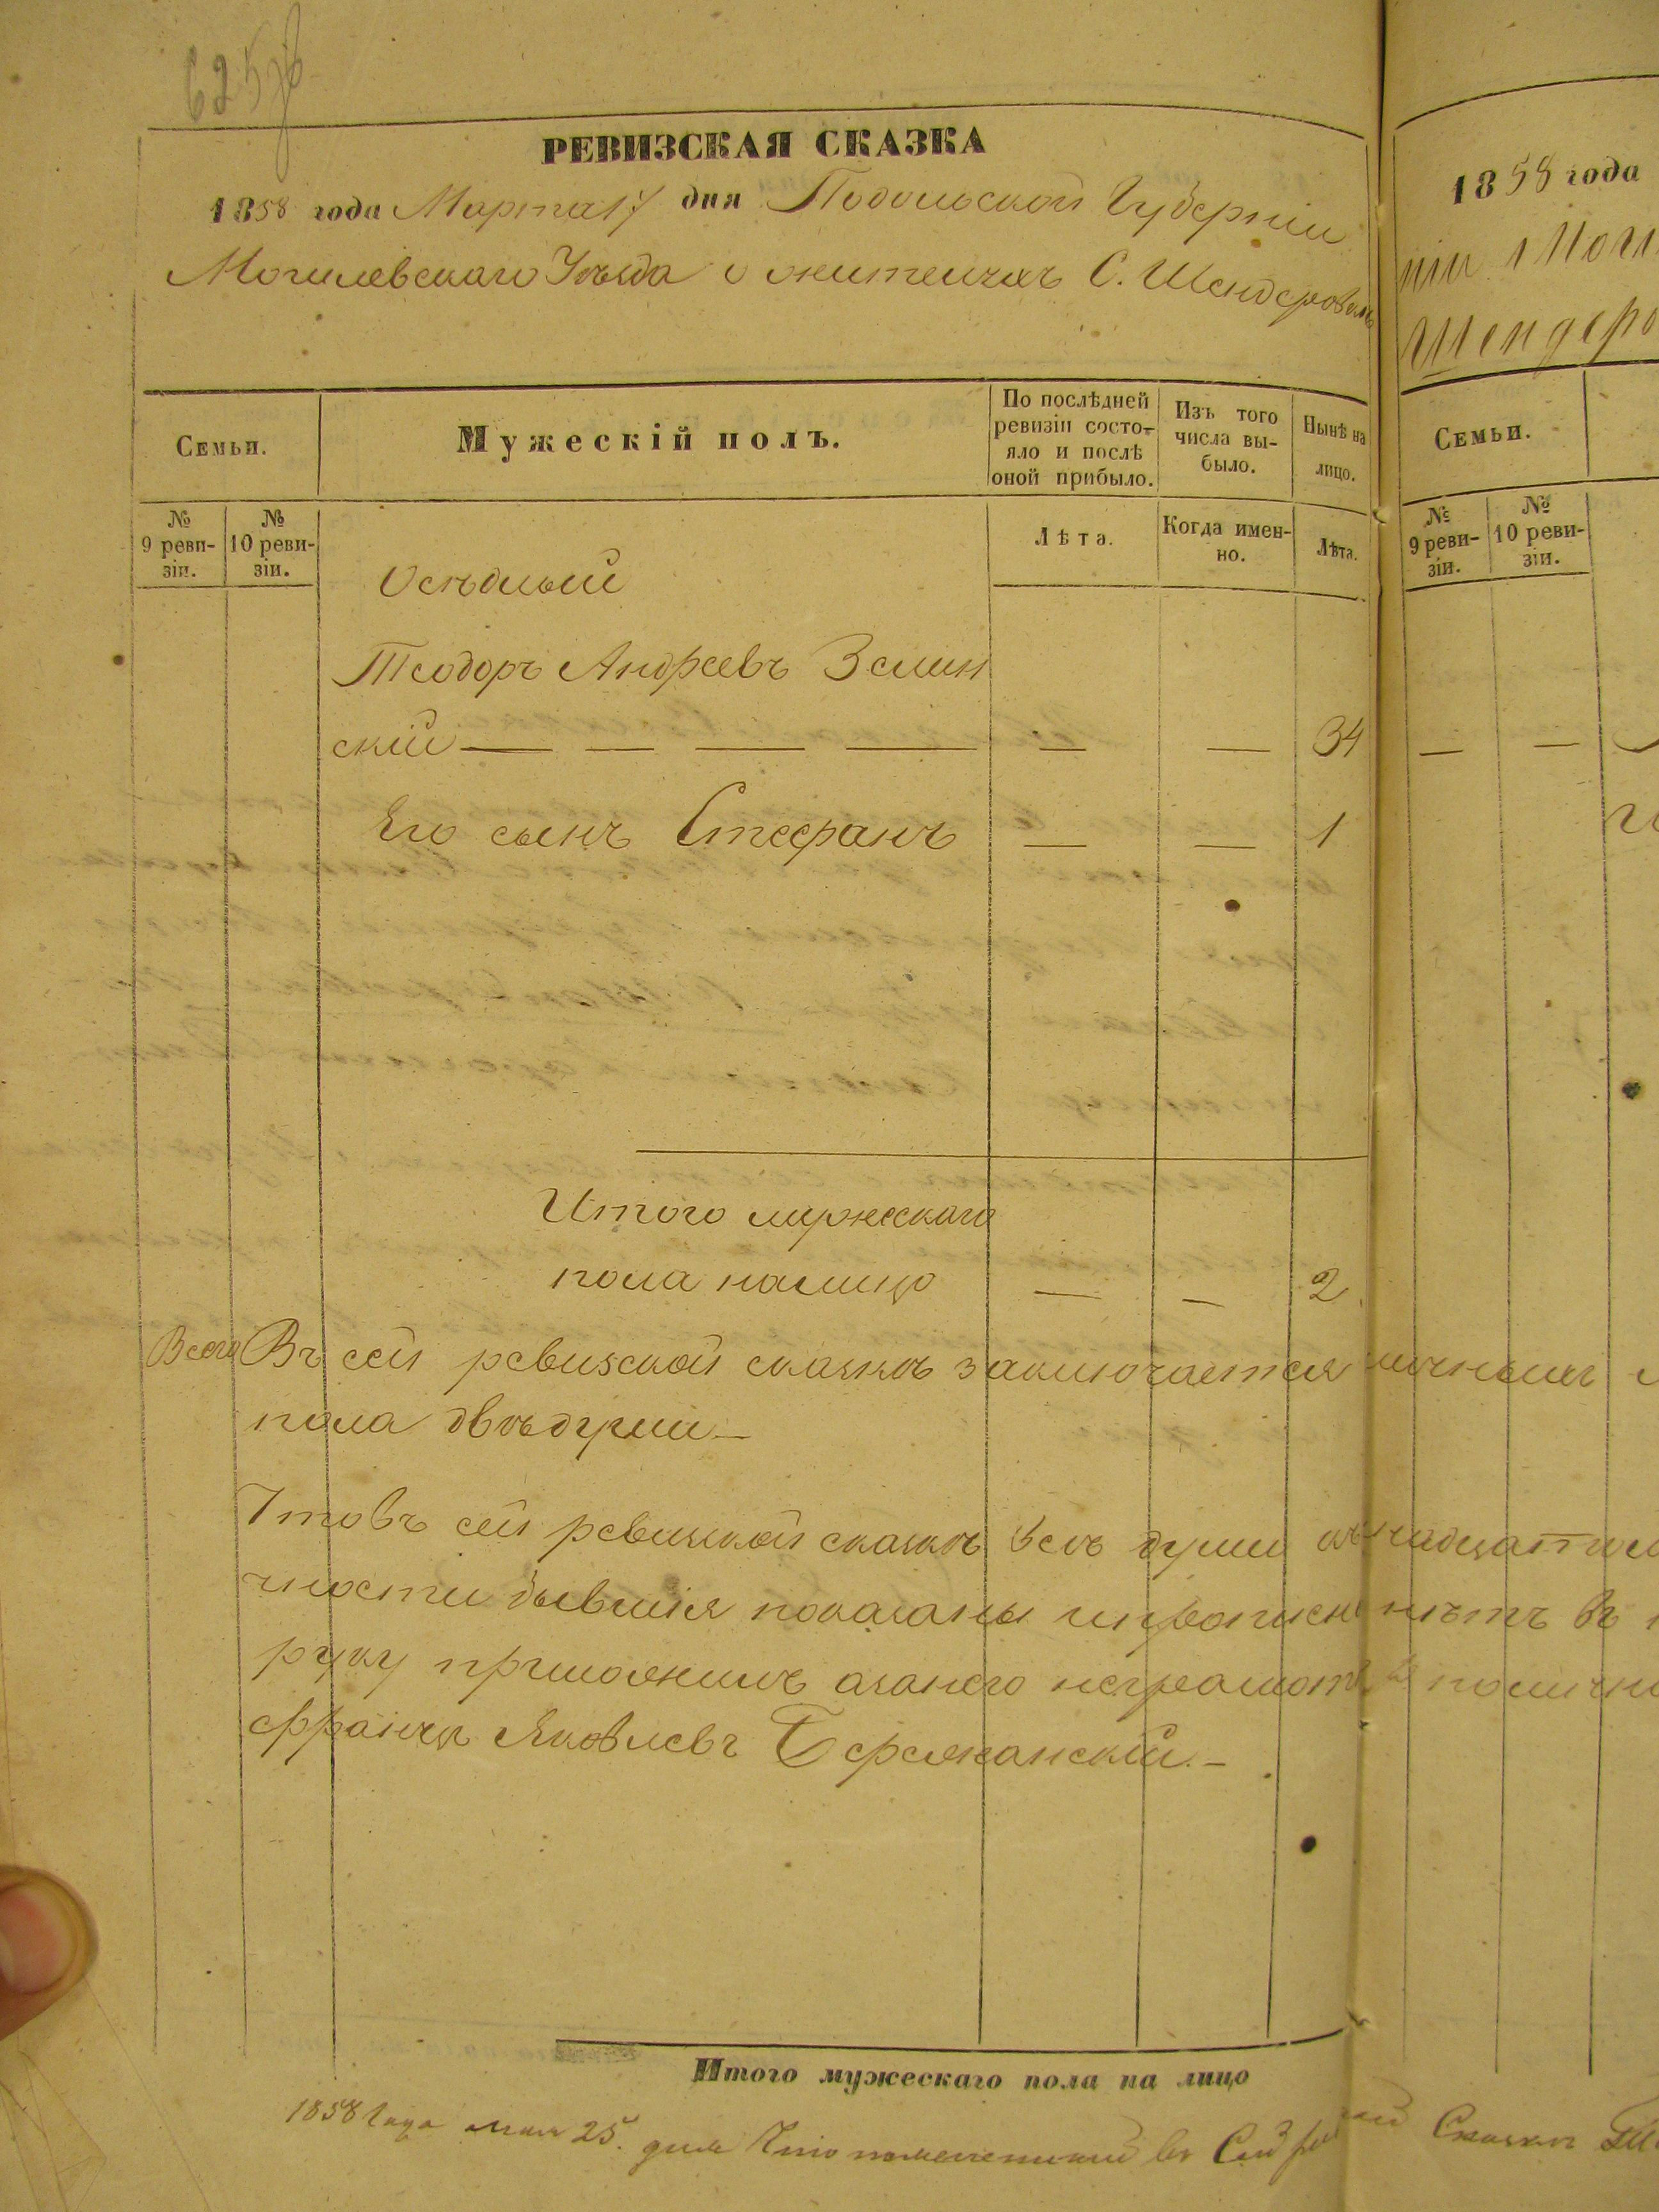 625 об
РЕВИЗСКАЯ СКАЗКА
1858 года Марта 17 дня Подольской Губерніи
Могилевскаго Уѣзда о жителяхъ С. Шендеровки
Семьи.
Мужескій полъ.
По послѣдней ревизіи состояло и послѣ оной прибыло.
Изъ того числа выбыло.
Нынѣ на лицо.
№ 9 ревизіи.
№ 10 ревизіи.
Лѣта.
Когда именно.
Лѣта.
Осѣдлый
Теодоръ Андреевъ Зелин
скій — — — — — — 34
Его сынъ Стефанъ — — 1
Итого мужескаго
пола налицо — — 2
Всего Въ сей ревизской сказкѣ заключается
пола двѣ души —
Что въ сей ревизской сказкѣ всѣ души
ности бывшія показаны и прописн
руку приложилъ за него неграмотн
Францъ Яковлевъ Бережанскій. —
Итого мужескаго пола на лицо
1858 года мая 25. дня Что въ Сей
1858 года
ніи Моги
Шендеро
Семьи.
№ 9 ревизіи.
№ 10 ревизіи.
— —